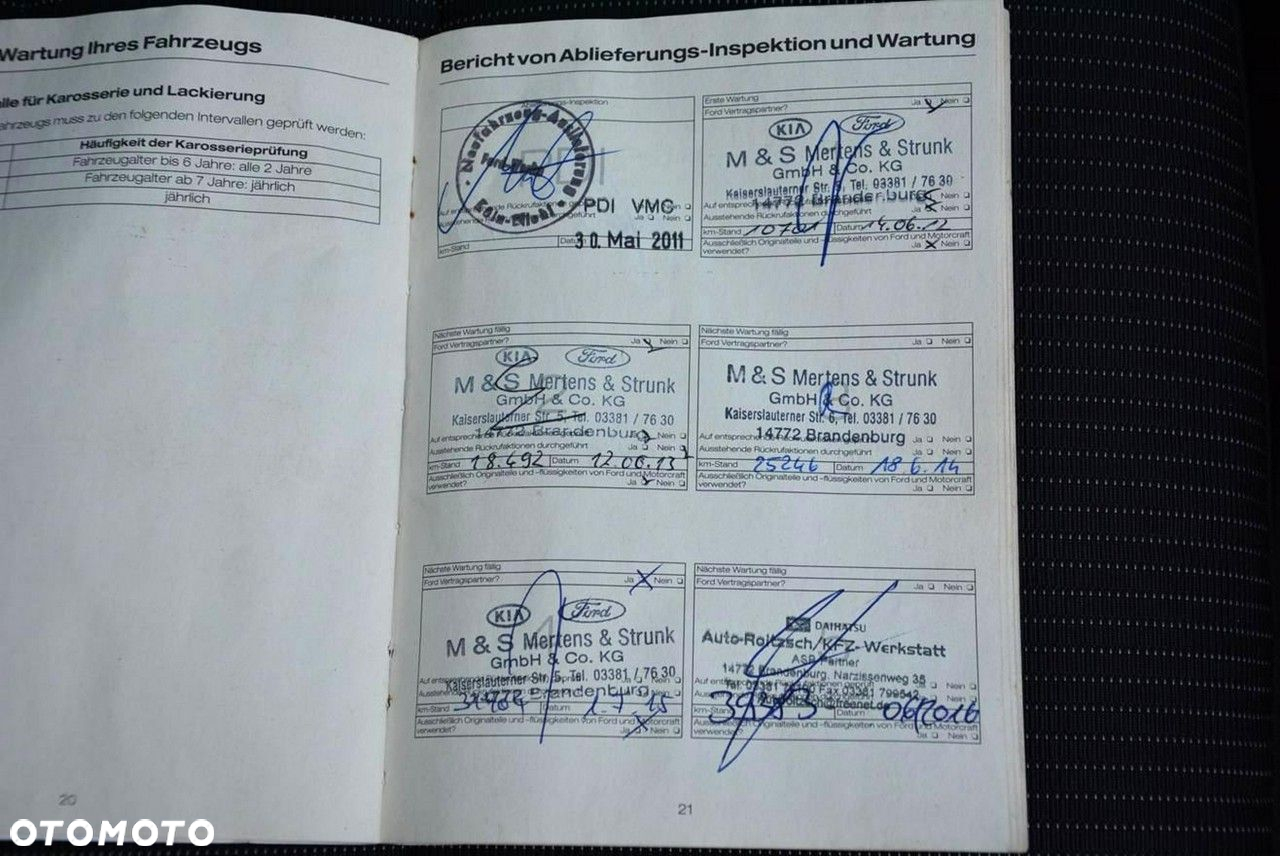 Wartung Ihres Fahrzeugs
lle für Karosserie und Lackierung
ahrzeugs muss zu den folgenden Intervallen geprüft werden:
Häufigkeit der Karosserieprüfung
Fahrzeugalter bis 6 Jahre: alle 2 Jahre
Fahrzeugalter ab 7 Jahre: jährlich
jährlich
20
Bericht von Ablieferungs-Inspektion und Wartung
Neufahrzeug-Auslieferung
PDI VMC
Ja Nein
km-Stand Datum 30. Mai 2011
Erste Wartung Ja Nein
Ford Vertragspartner?
KIA Ford
M & S Mertens & Strunk
GmbH & Co. KG
Kaiserslauterner Str. 5, Tel. 03381 / 76 30
14772 Brandenburg
Ausstehende Rückrufaktionen durchgeführt Ja Nein
km-Stand Datum 14.06.12
Ausschließlich Originalteile und -flüssigkeiten von Ford und Motorcraft
verwendet? Ja Nein
Nächste Wartung fällig
Ford Vertragspartner? Ja Nein
KIA Ford
M & S Mertens & Strunk
GmbH & Co. KG
Kaiserslauterner Str. 5, Tel. 03381 / 76 30
14772 Brandenburg Nein
Ausstehende Rückrufaktionen durchgeführt Ja Nein
km-Stand 18.492 Datum 12.06.13
Ausschließlich Originalteile und -flüssigkeiten von Ford und Motorcraft
verwendet? Ja Nein
Nächste Wartung fällig
Ford Vertragspartner? Ja Nein
M & S Mertens & Strunk
GmbH & Co. KG
Kaiserslauterner Str. 5, Tel. 03381 / 76 30
14772 Brandenburg Ja Nein
Ausstehende Rückrufaktionen durchgeführt Ja Nein
km-Stand 25246 Datum 18.6.14
Ausschließlich Originalteile und -flüssigkeiten von Ford und Motorcraft
verwendet? Ja Nein
Nächste Wartung fällig
Ford Vertragspartner? Ja Nein
KIA Ford
M & S Mertens & Strunk
GmbH & Co. KG
Kaiserslauterner Str. 5, Tel. 03381 / 76 30
14772 Brandenburg Nein
km-Stand Datum 1.7.15
Ausschließlich Originalteile und -flüssigkeiten von Ford und Motorcraft
verwendet? Ja Nein
Nächste Wartung fällig
Ford Vertragspartner? Ja Nein
DAIHATSU
Auto-Roitzsch/KFZ-Werkstatt
ASP Partner
14772 Brandenburg, Narzissenweg 35
Fax 03381 799542 Ja Nein
km-Stand 39383 Datum 06/2016
Ausschließlich Originalteile und -flüssigkeiten von Ford und Motorcraft
verwendet? Ja Nein
21
OTOMOTO